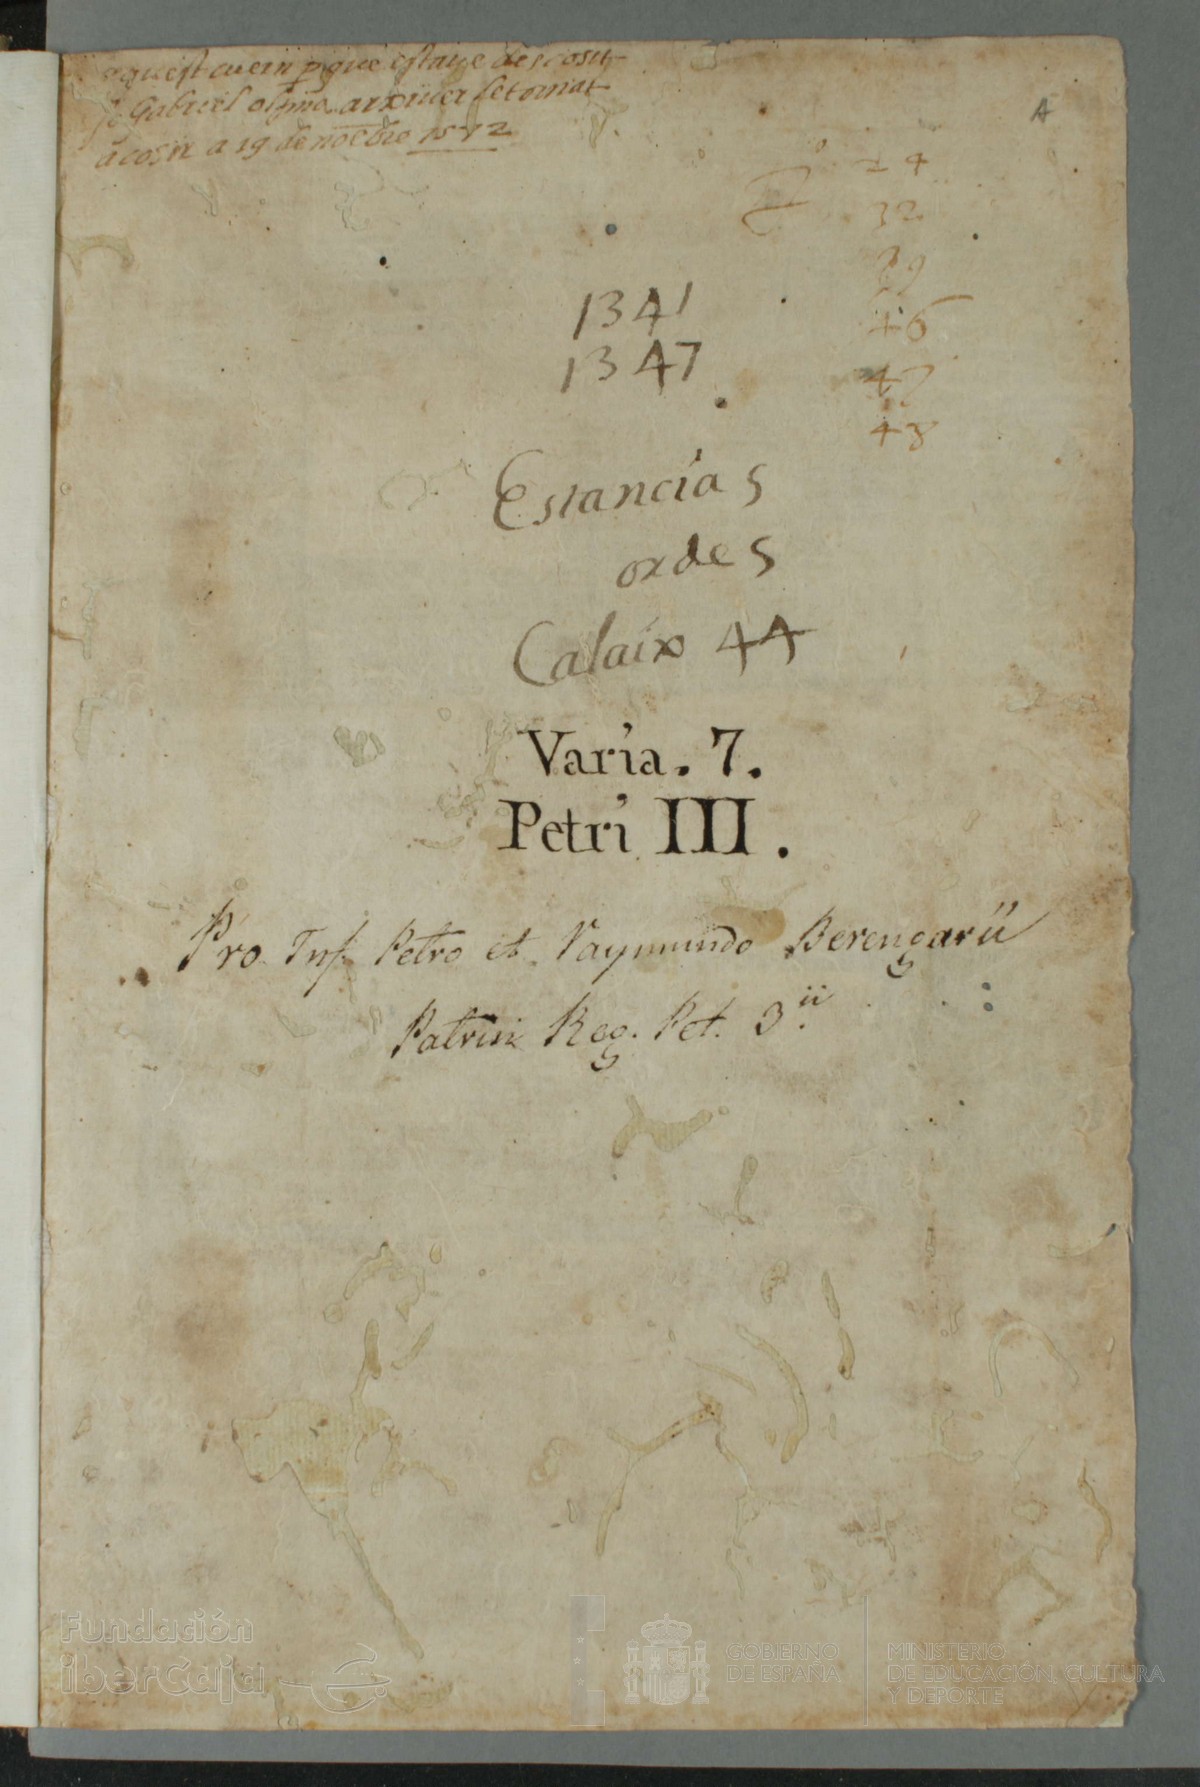 aquest cuern pque estaue descosit
Jo Gabriel olzina arxiuer fetornat
a cosir a 19 de noebre 1572
A
24
32
39
46
47
48
1341
1347
Estancias
ordes
Calaix 44
Varia. 7.
Petri III.
Pro Inf. Petro et Raymundo Berengarii
Patruis Reg. Pet. 3.ii
Fundación
iberCaja
GOBIERNO
DE ESPAÑA
MINISTERIO
DE EDUCACIÓN, CULTURA
Y DEPORTE